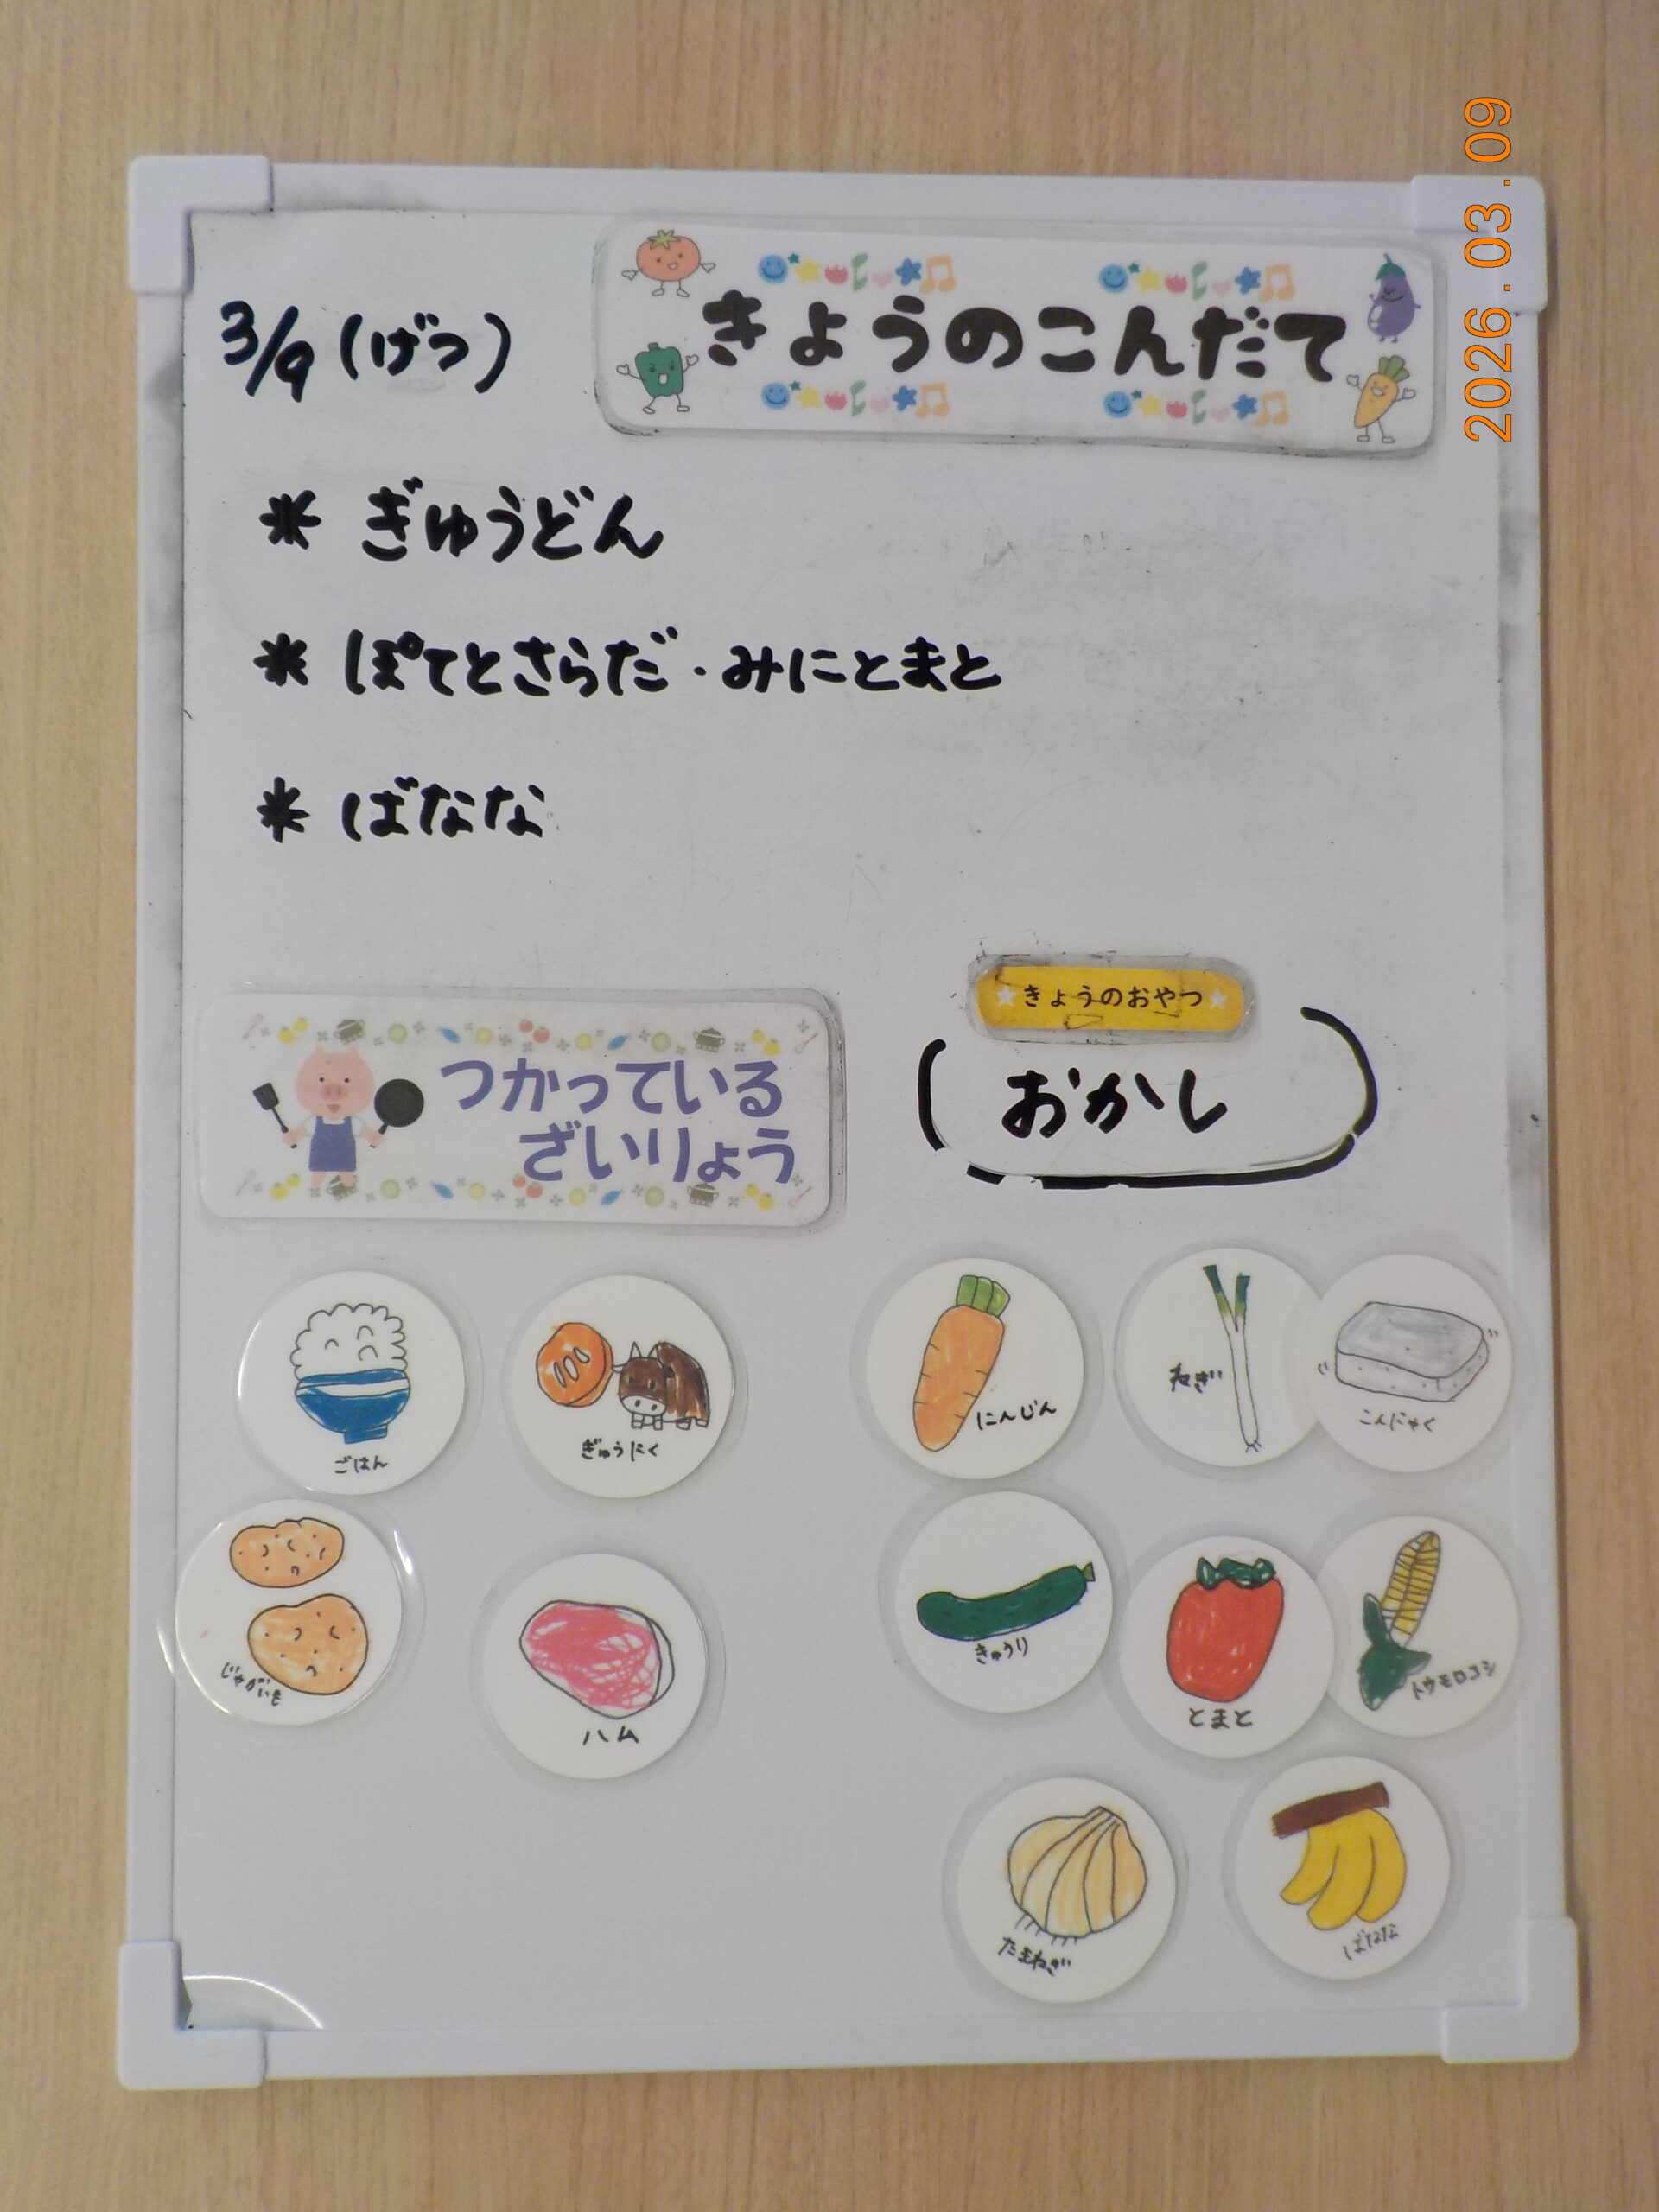 2026.03.09
3/9 (げつ)
きょうのこんだて
* ぎゅうどん
* ぽてとさらだ・みにとまと
* ばなな
きょうのおやつ
おかし
つかっている
ざいりょう
ごはん
ぎゅうにく
にんじん
ねぎ
こんにゃく
じゃがいも
ハム
きゅうり
とまと
トウモロコシ
たまねぎ
ばなな